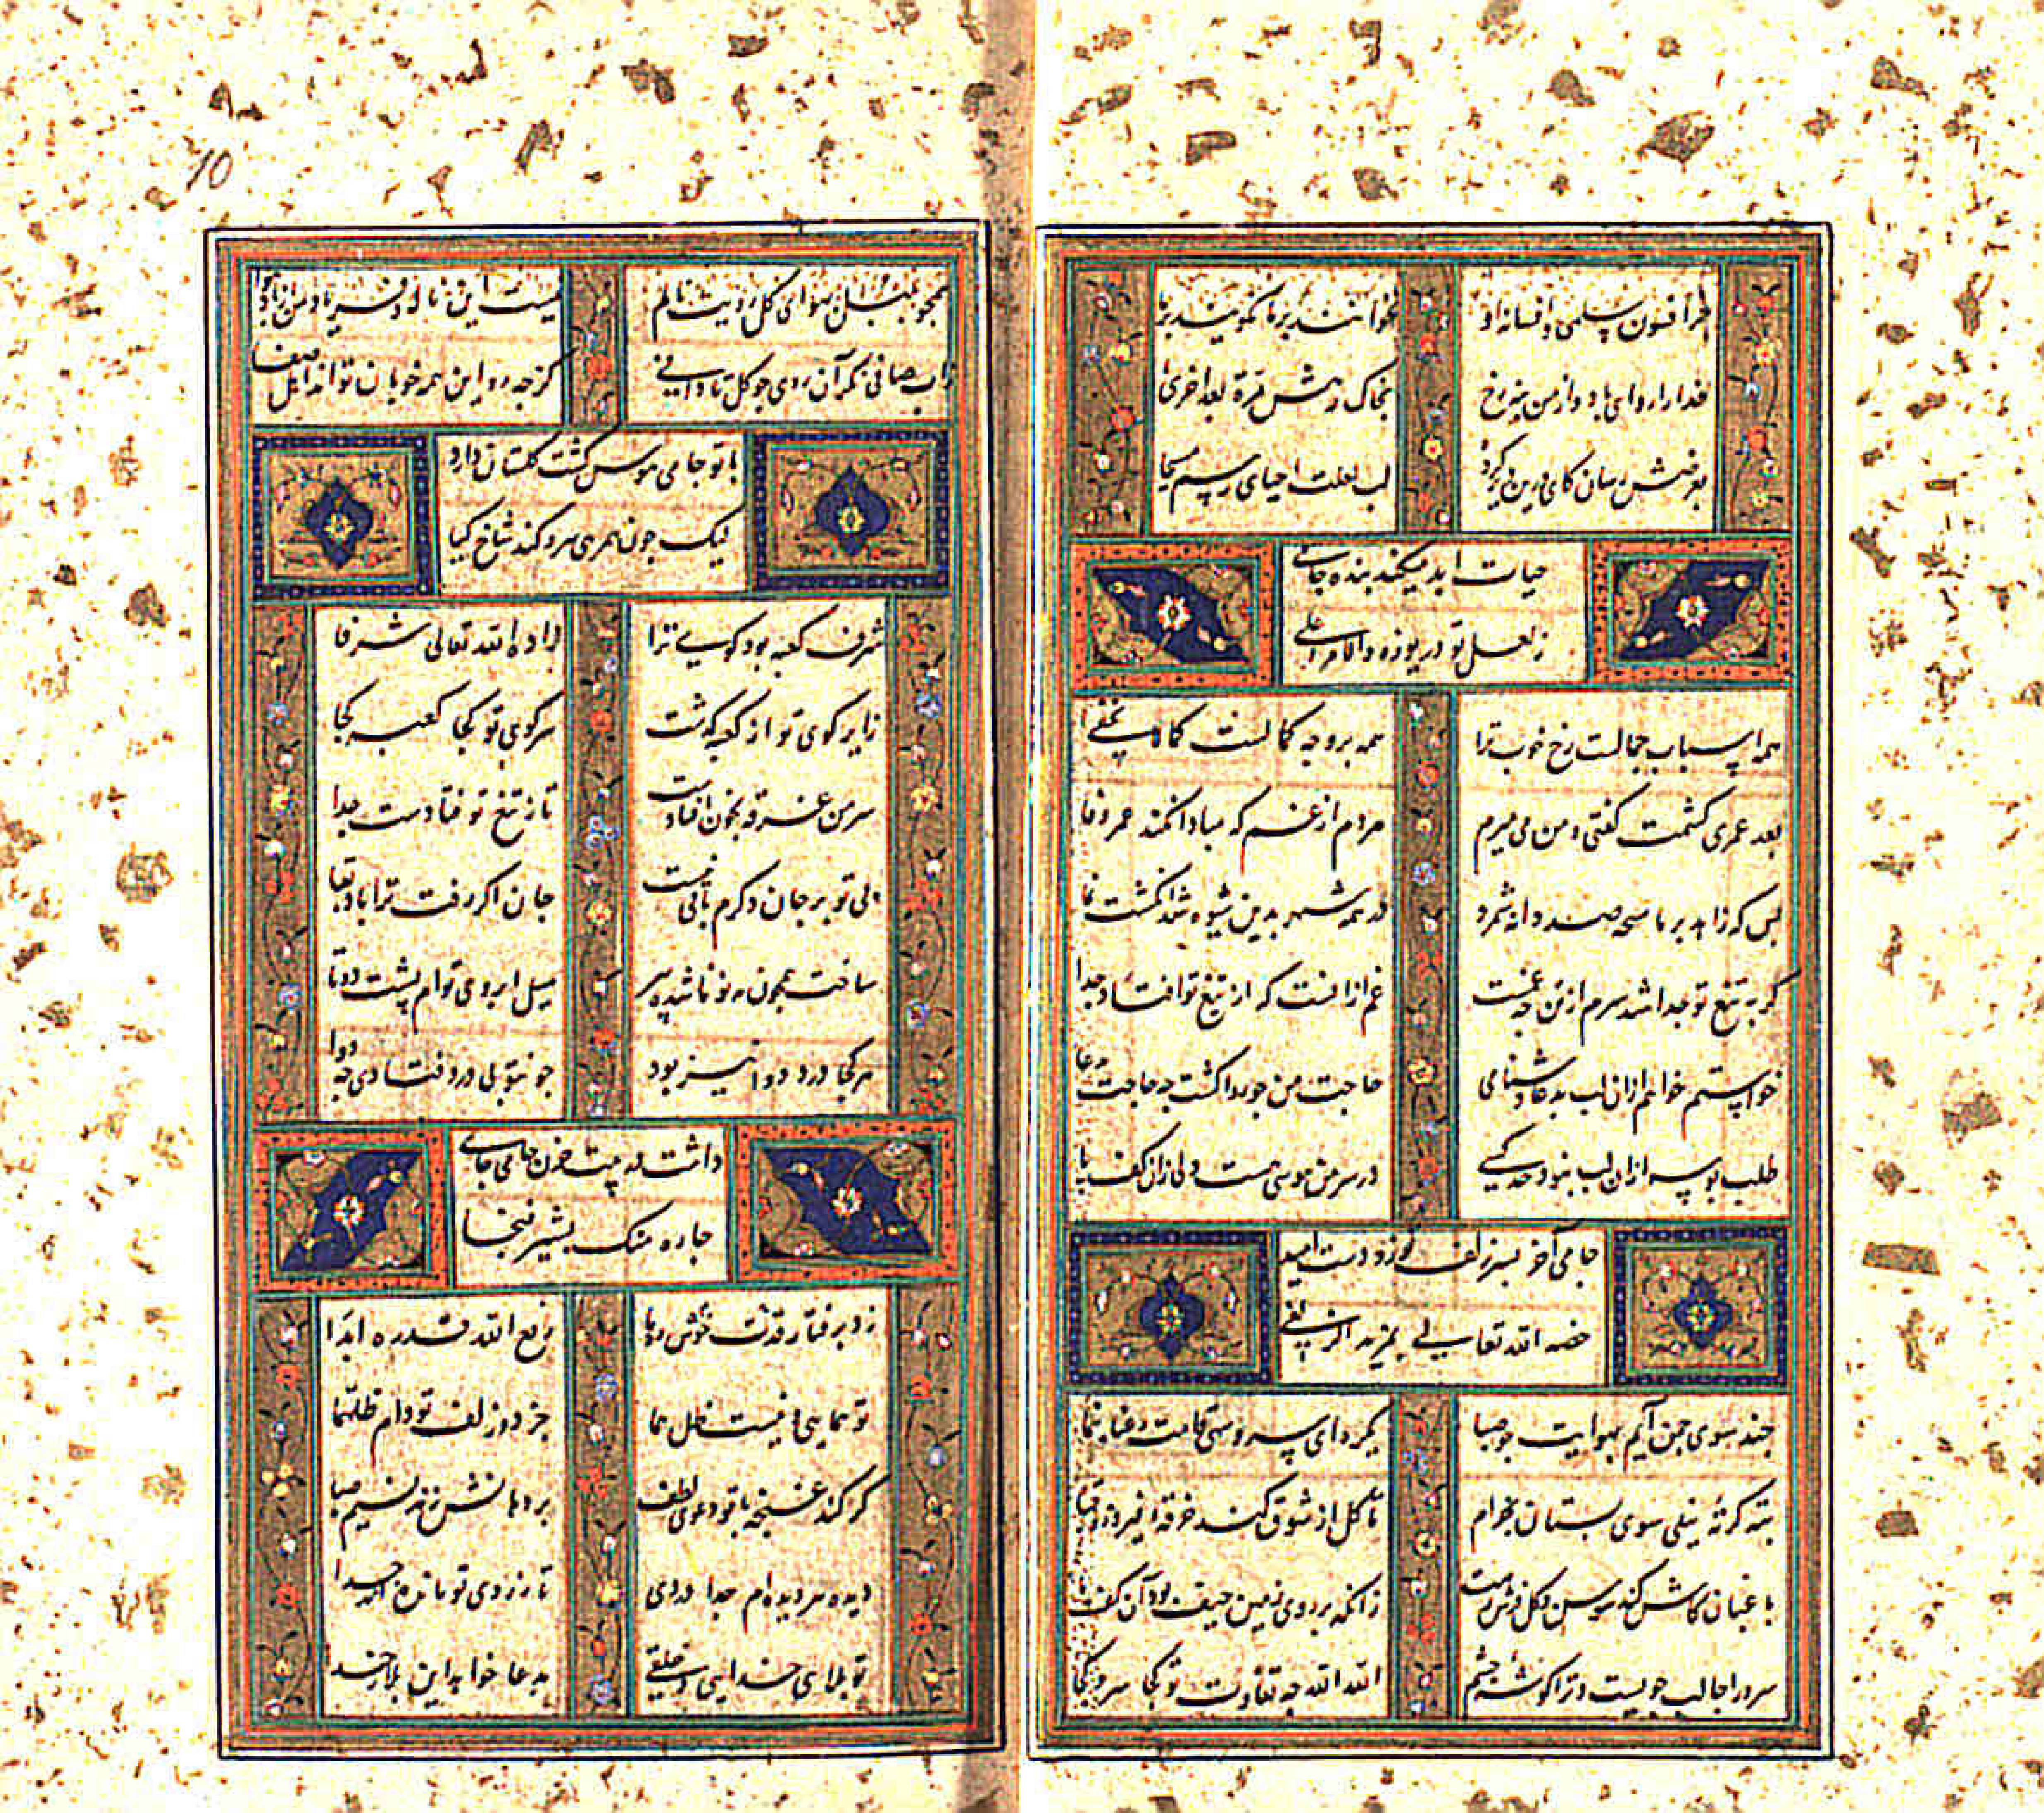 افسون سلمی و افسانه او نخوانند بر ما نکویند بر ما
خدا را روای باد و از من بنه رخ بخاک رهش مرة بعد اخری
بعرضش رسان کای لب لعلت احیای رسم مسیحا
حیات ابد میکند بنده جامی
ز لعل تو دریوزه والامر اعلی
همه اسباب جمالست رخ خوب ترا همه بر وجه کمالست کما لا یخفی
بعد عمری کشمت کفتی و من می میرم هر دم از غم که مبادا نکند عمر وفا
بس که زاهد بریا سبحه صد دانه شمرد در همه شهر بدین شیوه شد انکشت نما
کر به تیغ تو جدا شد سرم از تن چه غمست غم از آنست که از تیغ تو افتاد جدا
خواستم خواهم ازان لب بدعا دشنامی حاجت من چو روا کشت چه حاجت بدعا
طلب بوسه ازان لب نبود حد کسی در سر من هوسی هست ولی زان کف پا
جامی آخر بسر زلف تو زد دست امید
خصه الله تعالی بمزید
جند سوی جمن آیم بهوایت جو صبا یکره ای سرو سهی قامت رعنا بنما
بسته کرته نیلی سوی بستان بخرام تا کل از شوق کند خرقه فیروزه قبا
باغبان کاش کند سوسن و کل فرش رهت زانکه بر روی زمین حیف بود آن کف پا
سرو را جا لب جویست و ترا کوشه چشم الله الله جه تفاوت تو کجا سرو کجا
10
همجو بلبل بهوای کل رویت نالم نیست این ناله و فریاد من از باد هوا
زاب صافی نکر آن روی جو کل تا دانی کز جه رو این همه خوبان تو اند اهل صفا
با تو جامی هوس کشت کلستان دارد
لیک جون همرهی سرو کند شاخ کیا
شرف کعبه بود کوی ترا زاده الله تعالی شرفا
زایر کوی تو از کعبه کذشت سر کوی تو کجا کعبه کجا
سر من غرقه بخون افتادست تا ز تیغ تو فتادست جدا
بی تو بر جان دکرم باقی نیست جان اکر رفت ترا باد بقا
ساخت همجون مه نو ناشده پیر میل ابروی توام پشت دوتا
هر کجا درد دوا نیز بود جو نتو بی درد فتادی جه دوا
داشت در جیب خون جامی جای
جاره
زد برفتار قدت خوش رفع الله قدره ابدا
تو همایی و نیست ظل هما جز دو زلف تو دام ظلهما
کر کند غنجه با تو دعوی لطف بر دهانش زند نسیم صبا
دیده هر دیده ام جدا دردی تا ز روی تو مانده ام جدا
تو بلای خدایی و خلقی بدعا خواهد این بلا ز خدا